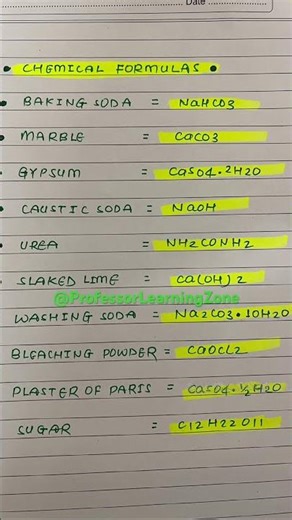 Date
• CHEMICAL FORMULAS •
• BAKING SODA = NaHCO3
• MARBLE = CaCO3
• GYPSUM = CaSO4.2H2O
• CAUSTIC SODA = NaOH
• UREA = NH2CONH2
• SLAKED LIME = Ca(OH)2
@ProfessorLearningZone
WASHING SODA = Na2CO3.10H2O
BLEACHING POWDER = CaOCl2
PLASTER OF PARIS = CaSO4.½H2O
SUGAR = C12H22O11